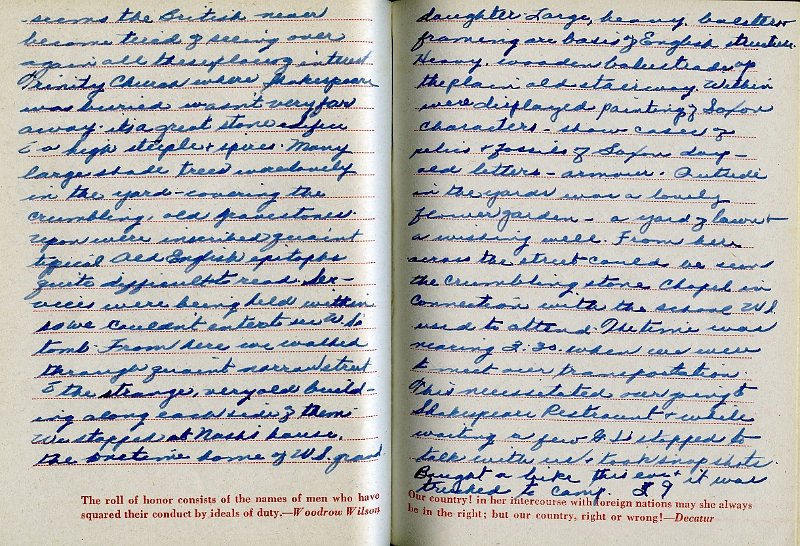 seems the British never
become tired of seeing over
again all these places of interest
Trinity Church where Shakespeare
was buried wasn't very far
away. it's a great stone edifice
& a high steeple & spires. Many
large shade trees were lovely
in the yard - covering the
crumbling, old gravestones.
Upon were inscribed quaint
typical Old English epitaphs
quite difficult to read. Ser-
vices were being held within
so we couldn't enter to see W. S's
tomb. From here we walked
through quaint narrow street
& the strange, very old build-
ing along each side of them
We stopped at Nash's house,
the onetime home of W.S. grand
The roll of honor consists of the names of men who have
squared their conduct by ideals of duty.—Woodrow Wilson
daughter. Large, heavy, bolster
framing are basis of English structure.
Heavy, wooden balustrade up
the plain old stairway. Within
were displayed painting of Saxon
characters - show cases of
relics & fossils of Saxon days -
old letters - armour. Outside
in the yards was a lovely
flower garden - a yard of lawn &
a wishing well. From here
across the street could be seen
the crumbling stone chapel in
connection with the school W.S.
used to attend. The time was
nearing 3:30 when we were
to meet our transportation.
This necessitated our going to
Shakespear Restraunt & while
waiting a few G.I.'s stopped to
talk with us & took snap shots.
Bought a bike this eve & it was
trucked to camp. £ 9
Our country! in her intercourse with foreign nations may she always
be in the right; but our country, right or wrong!—Decatur